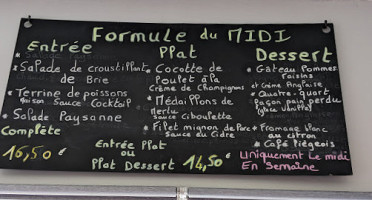 Formule du MIDI
Entrée
* Salade de croustillant
de Brie
* Terrine de poissons
Maison Sauce Cocktail
* Salade Paysanne
Complète
16,50 €
Plat
* Cocotte de
Poulet à la
Crème de Champignons
* Médaillons de
Merlu
sauce Ciboulette
* Filet mignon de Porc
Sauce au Cidre
Entrée Plat
ou
Plat Dessert 14,50 €
Dessert
* Gâteau Pommes
raisins
et Crème Anglaise
* Quatre-quart
façon pain perdu
(glace vanille)
* Fromage blanc
au citron
* Café Liégeois
Uniquement Le midi
En Semaine